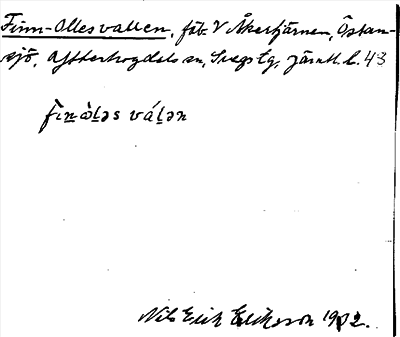 Finn-Ollesvallen, fäb. V Åkertjärnen, Östan-
sjö, Ytterhogdals sn, Svegs tg, Jämtl. l. 43
fìnὰləs válən
Nils Erik Eriksson 1982.